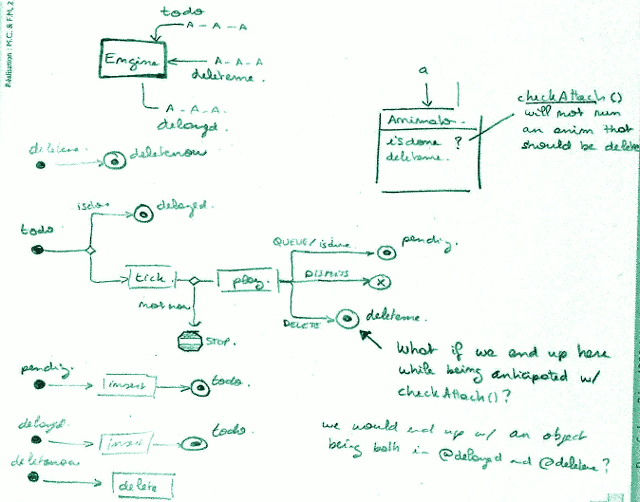 Réalisation : M.C. & F.M, 2
todo
A - A - A
Engine
A - A - A
deleteme.
A - A - A.
delayed.
a
Animator.
isdone ?
deleteme.
checkAttach()
will not run
an anim that
should be delete
deleteme.
deletenow
isdone
delayed.
todo
tick
play
not now
STOP.
QUEUE/isdone
pending.
DELETE
deleteme.
What if we end up here
while being anticipated w/
checkAttach()?
we would end up w/ an object
being both in @delayed and @deleteme?
pending.
insert
todo.
delayed.
insert
todo.
deletenow
delete